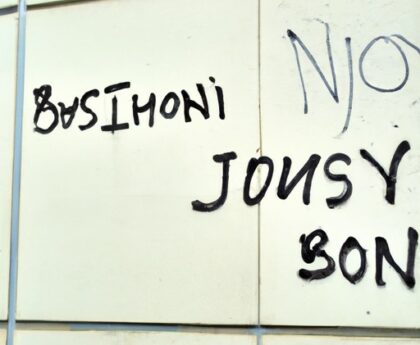 NJO
BASIMONI
JONSY
BON